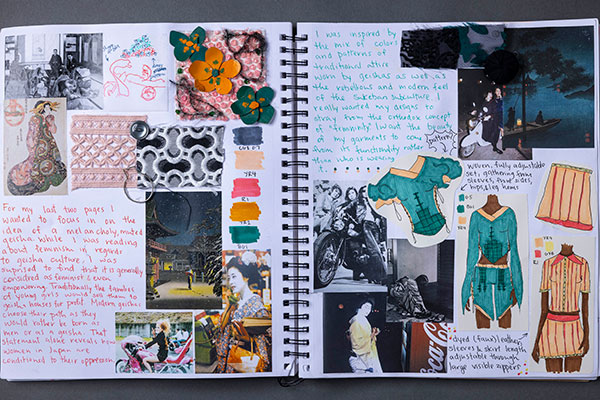 For my last two pages I
wanted to focus in on the
idea of a melancholy, muted
geisha. While I was reading
about feminism in regards
to geisha culture, I was
suprised to find that it is generally
considered as feminist & even
empowering. Traditionally the families
of young girls would sell them to
geisha houses for profit. Maidens would
choose their path as they
would rather be born as
men or as a geisha. That
statement alone reveals how
women in Japan are
conditioned to their oppression
YR4
R1
YR2
B01
I was inspired by
the mix of colors
and patterns of
traditional attire
worn by geishas as well as
the rebellious and modern feel
of the Sukeban subculture. I
really wanted my designs to
stray from the orthodox concept
of "femininity". I want the beauty
of my garments to come
from its functionality rather
than who is wearing
patterns
woven, fully adjustable
set, gathering from
sleeves, front, sides,
hips, & leg hems
Coca-Cola
dyed (faux) leather,
sleeves & skirt length
adjustable through
large visible zippers